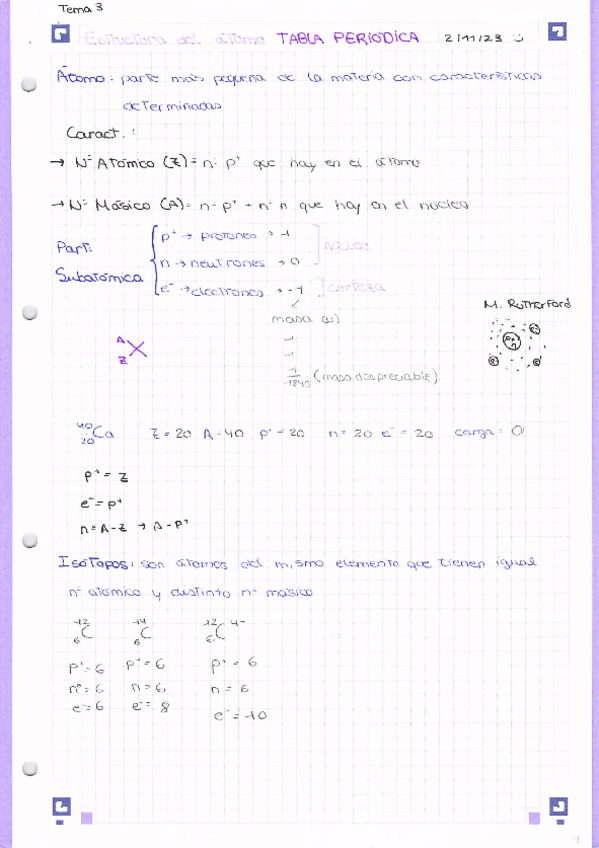 Tema 3
Estructura del átomo TABLA PERIODICA 2/11/23
Átomo: parte más pequeña de la materia con características
determinadas
Caract.:
→ Nº Atómico (Z) = nº p⁺ que hay en el átomo
→ Nº Másico (A) = nº p⁺ + nº n que hay en el núcleo
Part. Subatómica
p⁺ → protones → +1
n → neutrones → 0
núcleo
e⁻ → electrones → -1
corteza
M. RUTHERFORD
masa (u)
1
1
1/1840 (masa despreciable)
A
Z X
⁴⁰₂₀Ca Z = 20 A = 40 p⁺ = 20 n = 20 e⁻ = 20 carga: 0
p⁺ = Z
e⁻ = p⁺
n = A - Z → A - p⁺
Isótopos: son átomos del mismo elemento que tienen igual
nº atómico y distinto nº másico
¹²₆C ¹⁴₆C ¹²₆C⁴⁻
p⁺ = 6 p⁺ = 6 p⁺ = 6
nº = 6 n = 6 n = 6
e⁻ = 6 e⁻ = 8 e⁻ = 10